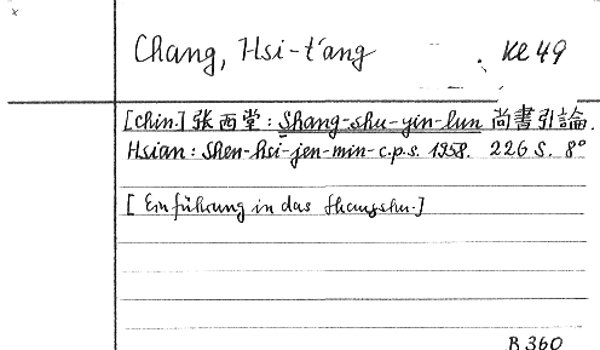 x
Chang, Hsi-t'ang Ke 49
[chin.] 张西堂: Shang-shu-yin-lun 尚書引論.
Hsian: Shen-hsi-jen-min-c.p.s. 1958. 226 S. 8°
[Einführung in das Shangshu.]
B 360